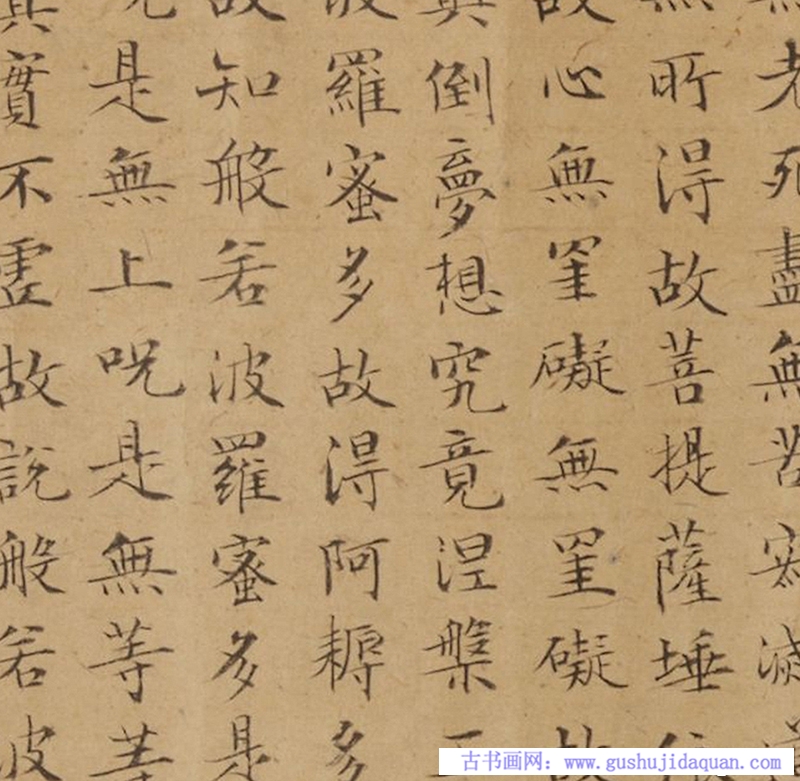 老死盡無苦寂滅道
無所得故菩提薩埵依
故心無罣礙無罣礙故
顛倒夢想究竟涅槃三
波羅蜜多故得阿耨多
故知般若波羅蜜多是
是無上呪是無等等
真實不虛故說般若波
古书画网：www.gushujidaquan.com